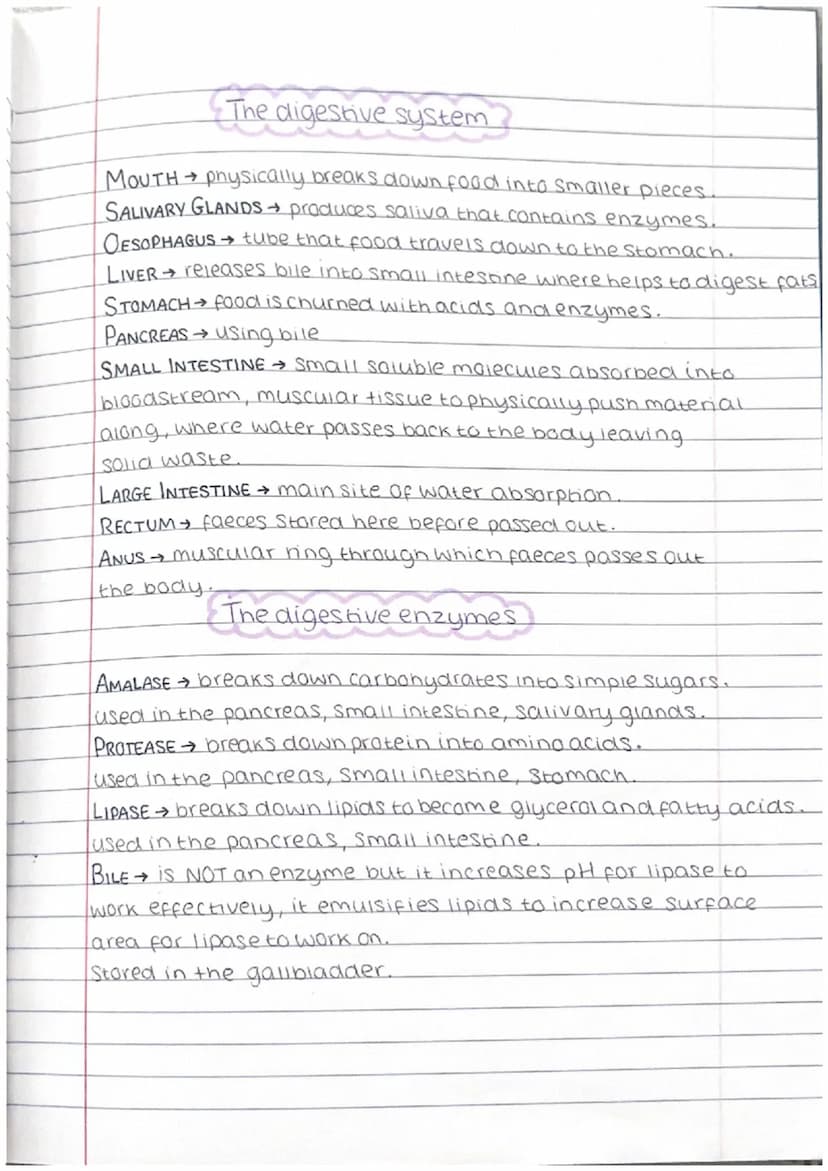 The digestive system
MOUTH → physically breaks down food into smaller pieces.
SALIVARY GLANDS → produces saliva that contains enzymes.
OESOPHAGUS → tube that food travels down to the stomach.
LIVER → releases bile into small intestine where helps to digest fats
STOMACH → food is churned with acids and enzymes.
PANCREAS → using bile
SMALL INTESTINE → small soluble molecules absorbed into
bloodstream, muscular tissue to physically push material
along, where water passes back to the body leaving
solid waste.
LARGE INTESTINE → main site of water absorption.
RECTUM → faeces stored here before passed out.
ANUS → muscular ring through which faeces passes out
the body.
The digestive enzymes
AMALASE → breaks down carbohydrates into simple sugars.
used in the pancreas, small intestine, salivary glands.
PROTEASE → breaks down protein into amino acids.
used in the pancreas, small intestine, stomach.
LIPASE → breaks down lipids to become glycerol and fatty acids.
used in the pancreas, small intestine.
BILE → is NOT an enzyme but it increases pH for lipase to
work effectively, it emulsifies lipids to increase surface
area for lipase to work on.
Stored in the gallbladder.